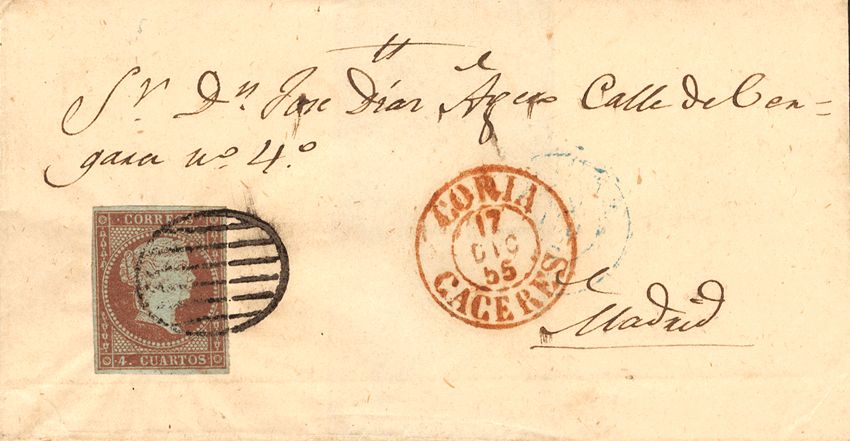 Sr. Dn. Jose Díaz Agero Calle de Ven-
gara no. 4o.
CORREOS
4. CUARTOS
CORIA
17
DIC
55
CACERES
Madrid